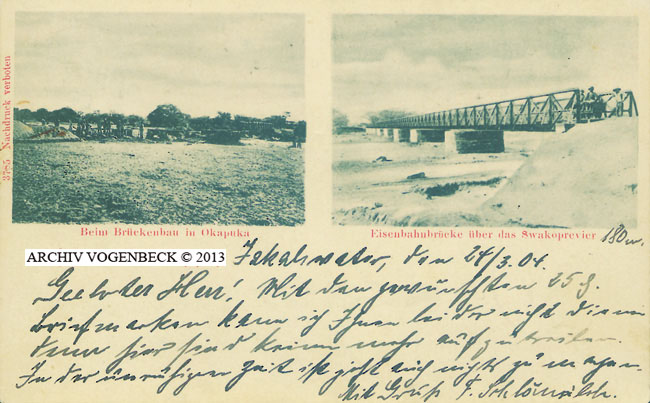 3785 Nachdruck verboten
Beim Brückenbau in Okapuka
Eisenbahnbrücke über das Swakoprevier 180 m.
ARCHIV VOGENBECK © 2013
Jakalswater, den 24/3.04.
Geehrter Herr! Mit den gewünschten 25 ₰
Briefmarken kann ich Ihnen leider nicht dienen
denn hier sind keine mehr aufzutreiben.
In der unruhigen Zeit ist jetzt auch nichts zu machen.
Mit Gruß F.